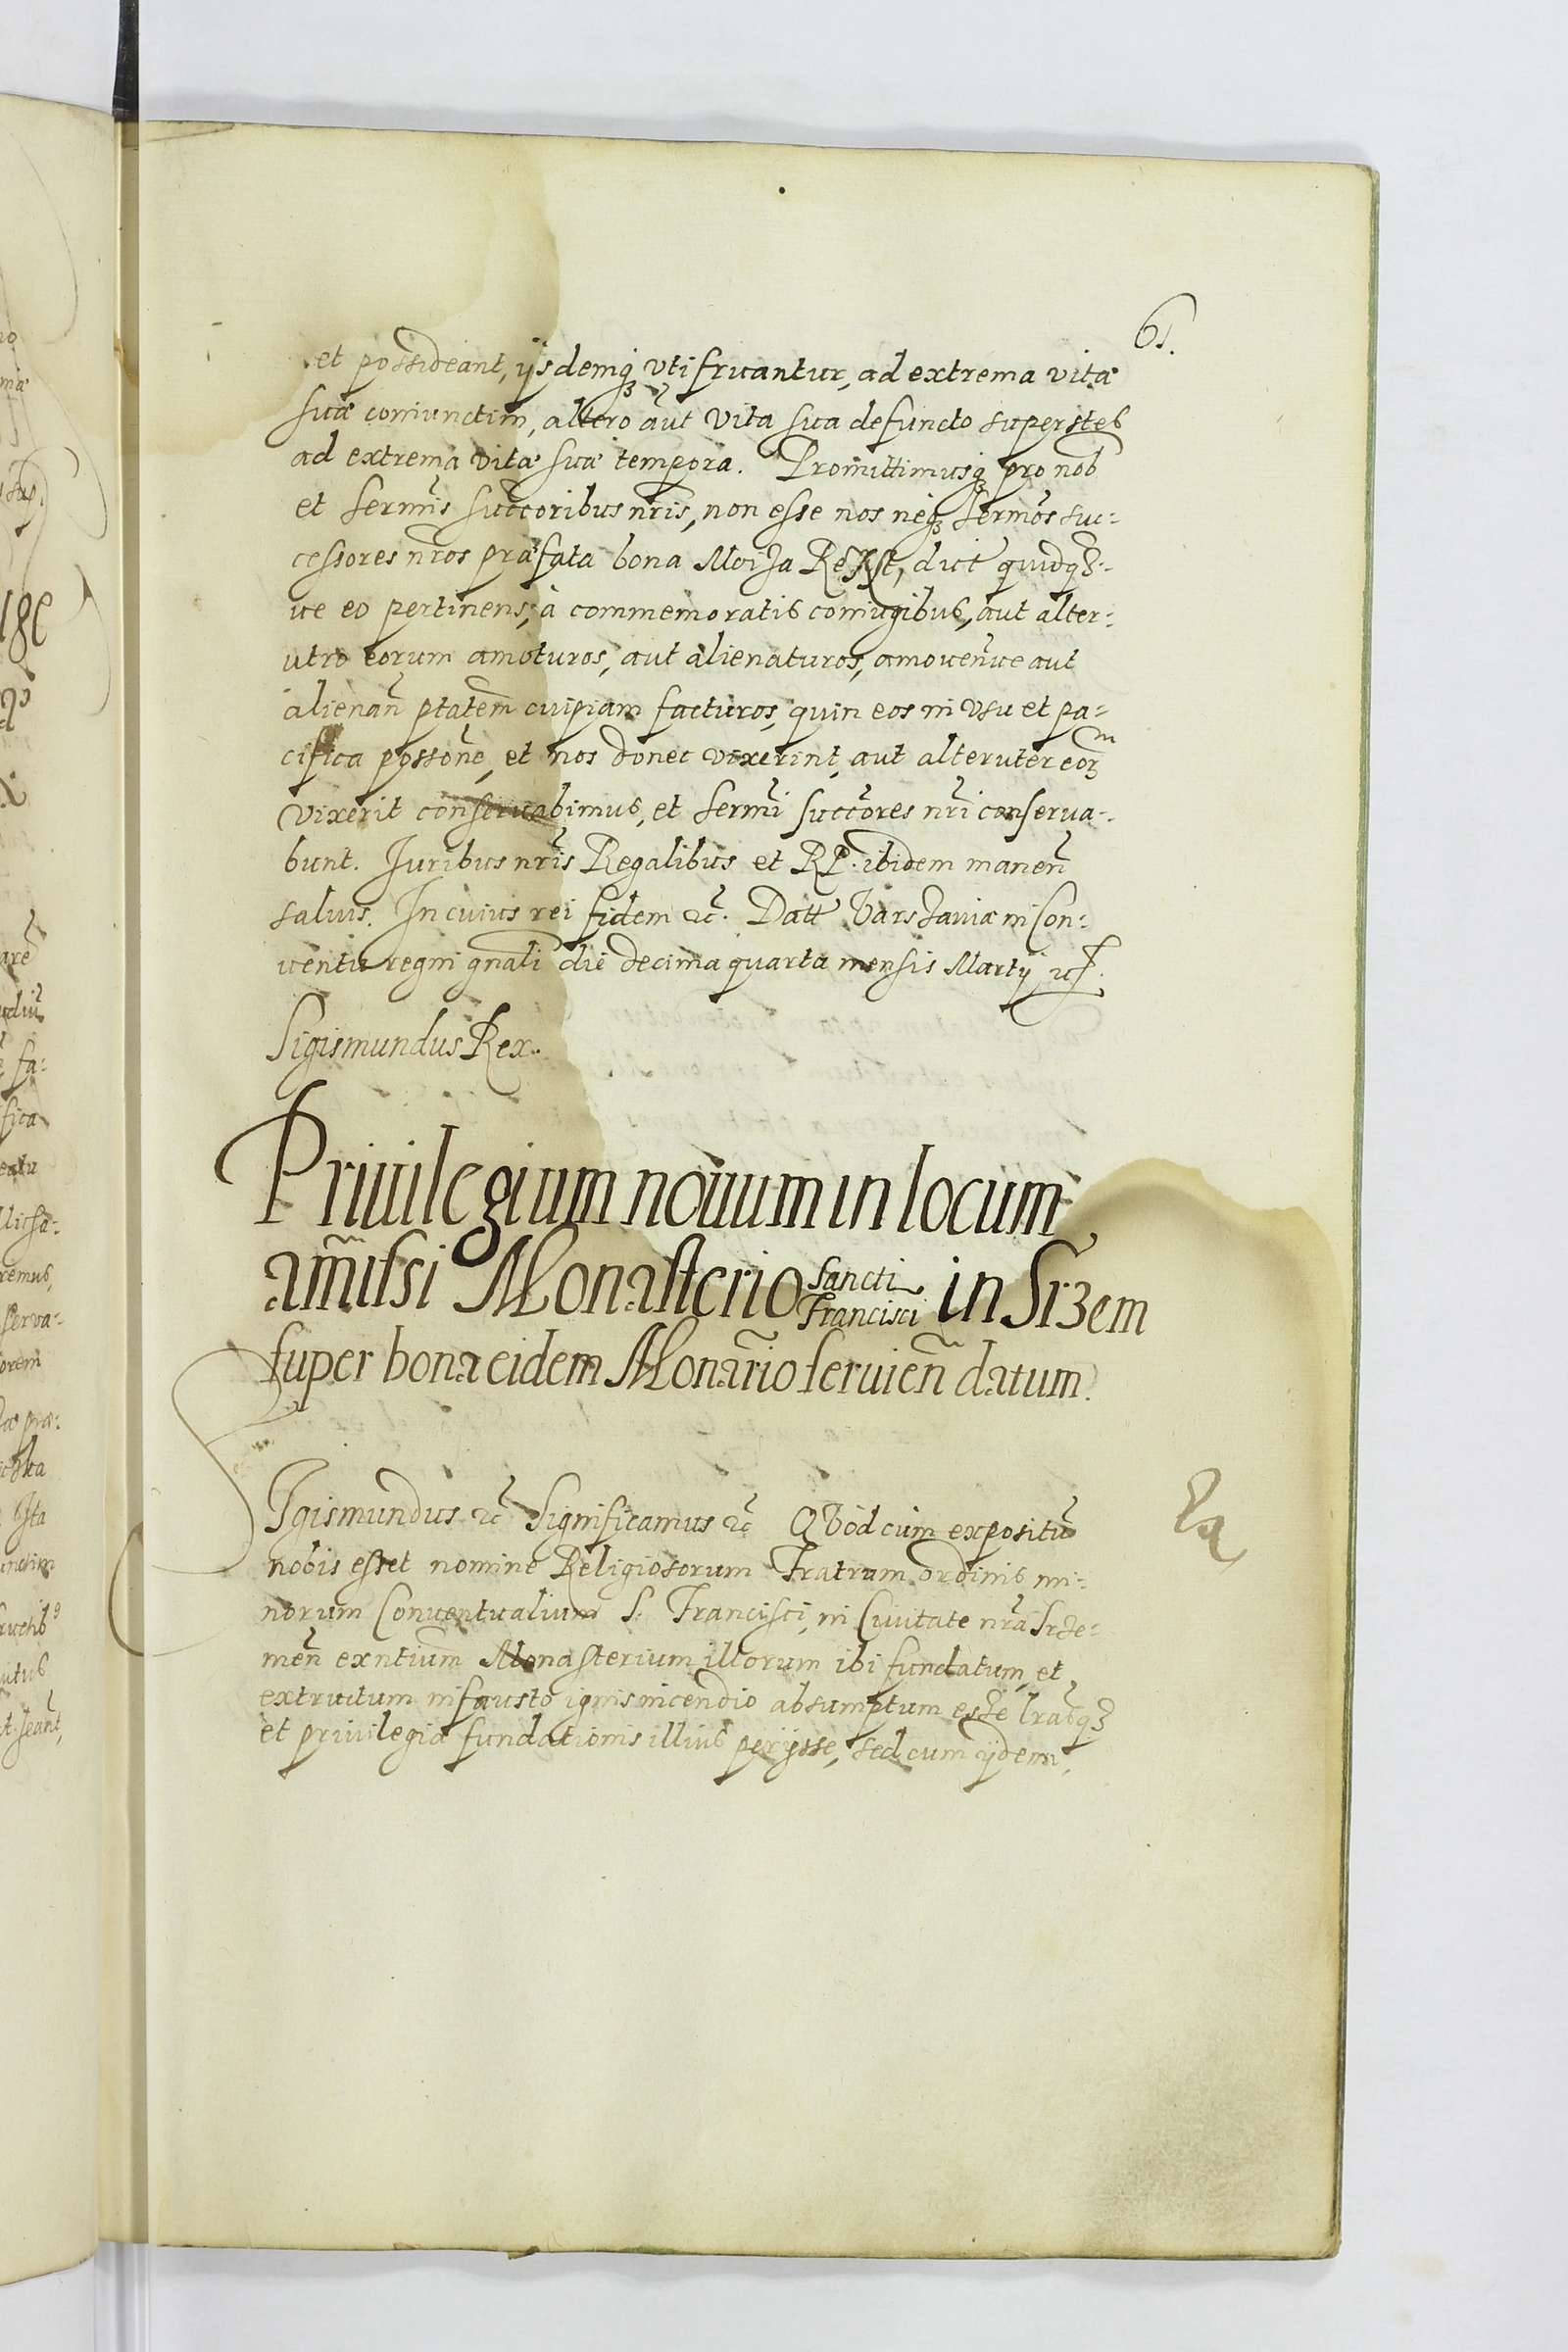 61.
et possideant, ijsdemq₃ vti fruantur, ad extrema vitæ
suæ coniunctim, altero aut̃ vita sua defuncto superstes
ad extrema vitæ suæ tempora. Promittimusq₃ pro nob
et Sermis̃ succ̃oribus nr̃is, non esse nos neq₃ Sermõs suc:
cessores nr̃os præfata bona
ue eo pertinens, à commemoratis coniugibus, aut alter:
utro eorum amoturos, aut alienaturos, amouen̄ue aut
alienan̄ ptatem̃ cuipiam facturos, quin eos in vsu et pa:
cifica possonẽ, et nos donec vixerint, aut alteruter eor₃
vixerit conseruabimus, et Sermĩ succõres nr̃i conserua:
bunt. Juribus nr̃is Regalibus et RP. ibidem manen̄
saluis. In cuius rei fidem &c̃. Datt Varsauiæ in Con:
uentu regni gnãli die decima quarta mensis Martij
Sigismundus Rex.
Priuilegium nouum in locum
am̃issi Monasterio Sancti Francisci in Srzem
super bona eidem Monãrio seruien̄ datum.
Sigismundus &c̃ Significamus &c̃ QVod cum expositũ
nobis esset nomine Religiosorum Fratrum ordinis mi:
norum Conuentualium S. Francisci, in Ciuitate nr̃a Srze:
men̄ exntium̃ Monasterium illorum ibi fundatum, et
extructum infausto ignis incendio absumptum esse lrãsq₃
et priuilegia fundationis illius perijsse, sed cum ijdem